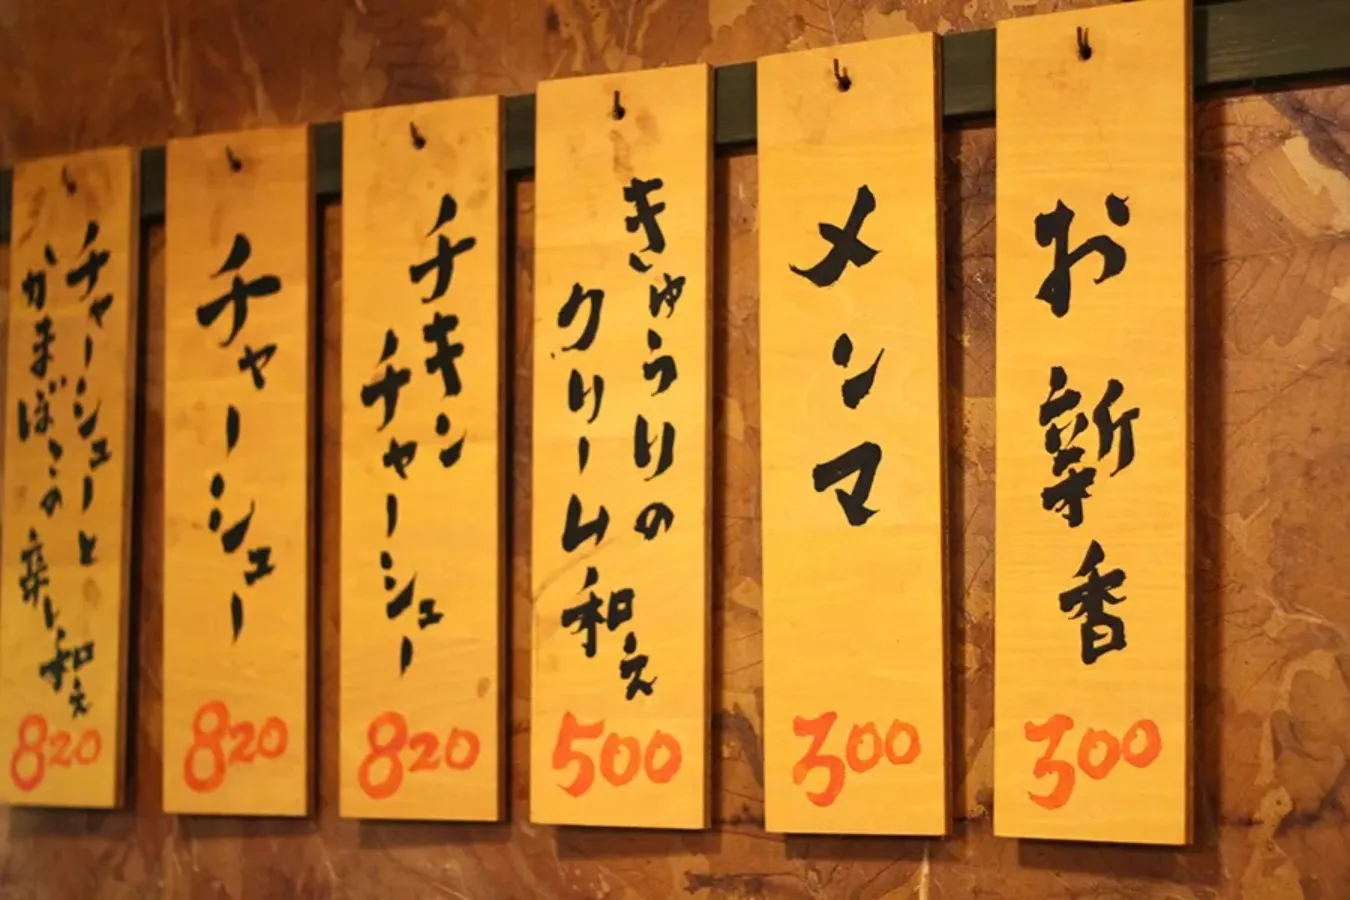 お新香
300
メンマ
300
きゅうりの
クリーム和え
500
チキン
チャーシュー
820
チャーシュー
820
チャーシューと
かまぼこの辛し和え
820